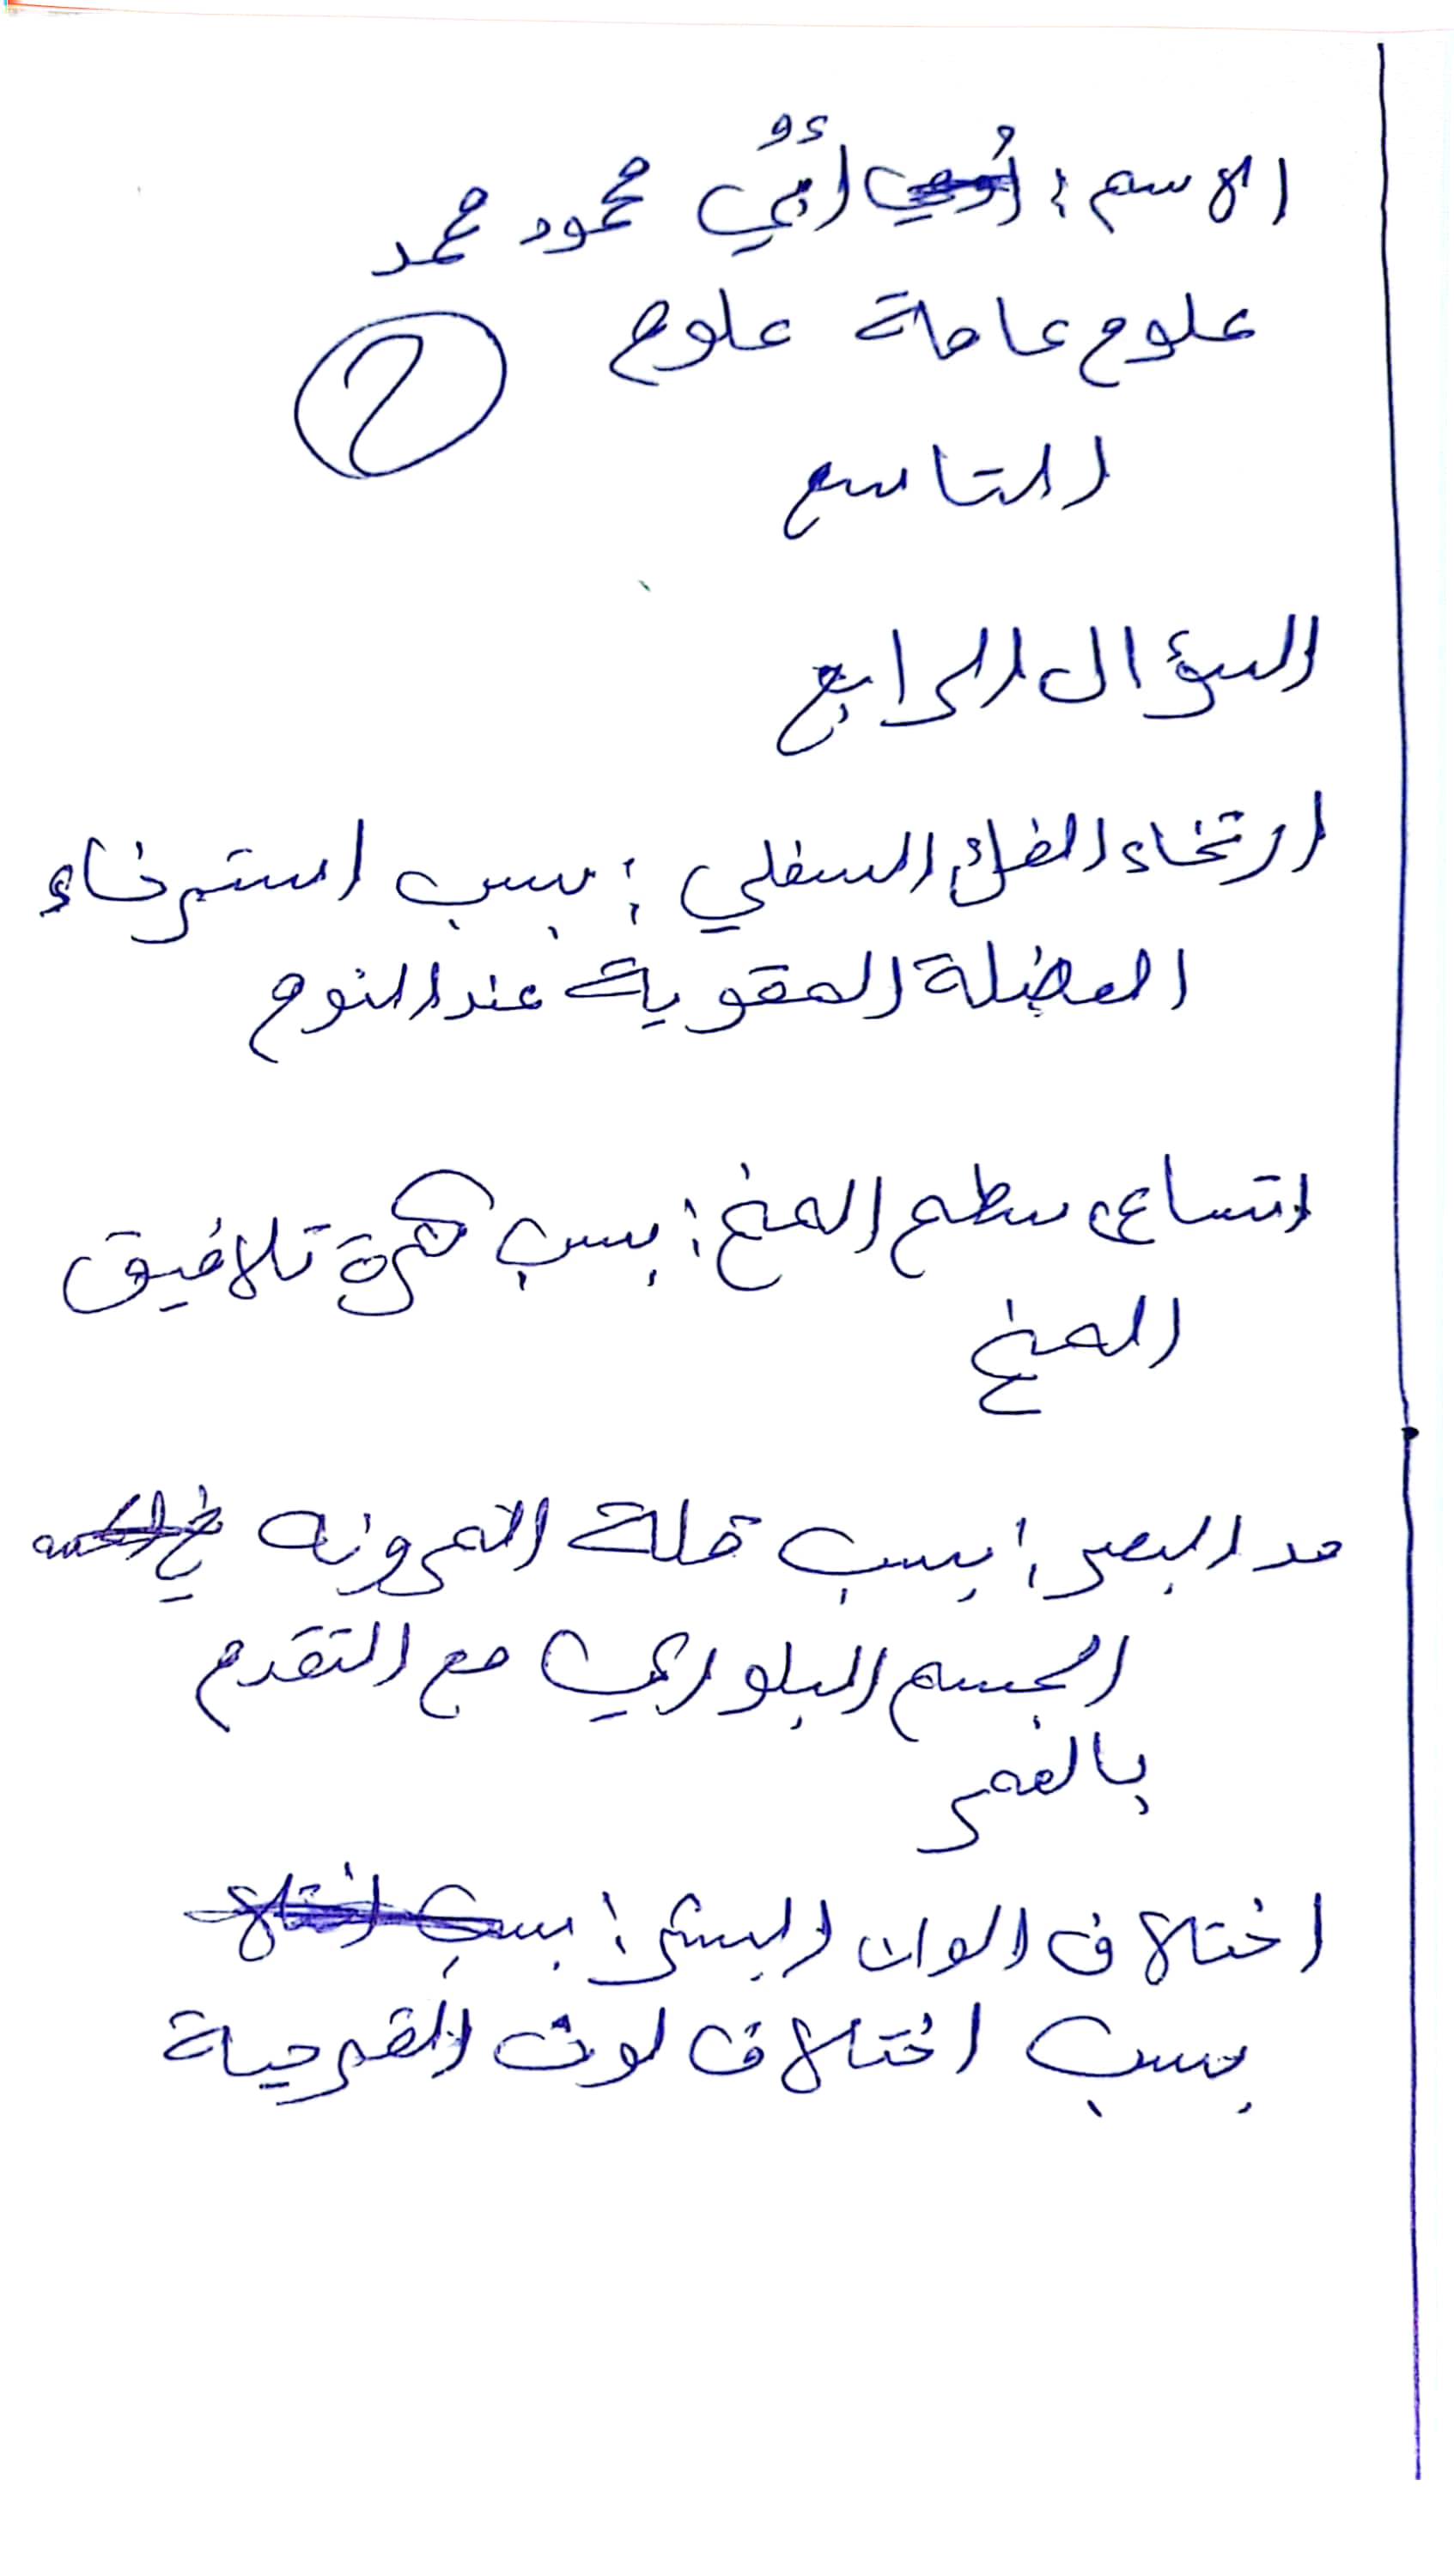 الاسم: أُبَيُّ محمود محمد
علوم عامة علوم
2
التاسع
السؤال الرابع
ارتخاء الفك السفلي: بسبب استرخاء
العضلة المقوية عند النوم
اتساع سطح المخ: بسبب كثرة تلافيق
المخ
مد البصر: بسبب قلة المرونه في
الجسم البلوري مع التقدم
بالعمر
اختلاف الوان البشر: بسبب
بسبب اختلاف لون القزحية